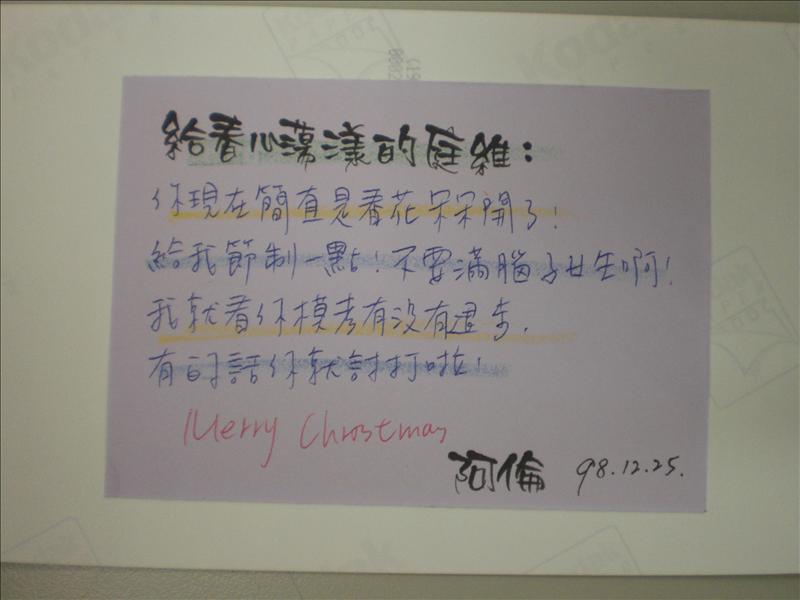 Kodak
給春心蕩漾的庭維：
你現在簡直是春花朵朵開了！
給我節制一點！不要滿腦子女生啊！
我就看你模考有沒有退步，
有的話你就討打啦！
Merry Christmas
阿倫 98.12.25.